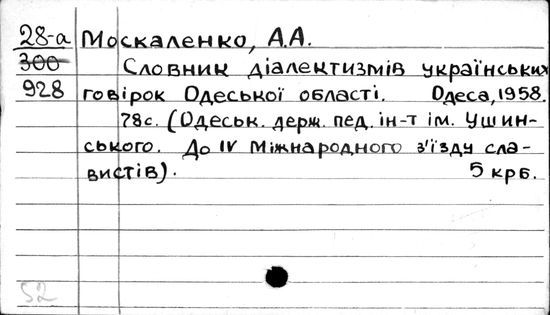 28-а Москаленко, А.А.
300 Словник діалектизмів українських
928 говірок Одеської області. Одеса, 1958.
78с. (Одеськ. держ. пед. ін-т ім. Ушин-
ського. До IV Міжнародного з'їзду сла-
вистів). 5 крб.
52